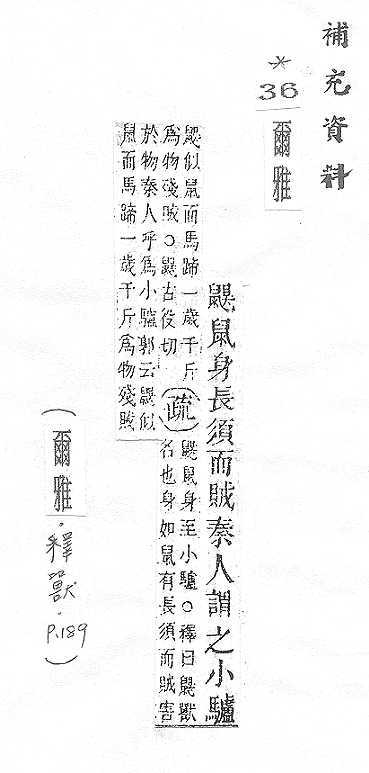 補充資料
*36
爾雅
鼳鼠身長須而賊秦人謂之小驢
鼳似鼠而馬蹄一歲千斤
為物殘賊○鼳古役切
(疏)
鼳鼠身至小驢○釋曰鼳獸
名也身如鼠有長須而賊害
於物秦人呼為小驢郭云鼳似
鼠而馬蹄一歲千斤為物殘賊
(爾雅·釋獸·P.189)